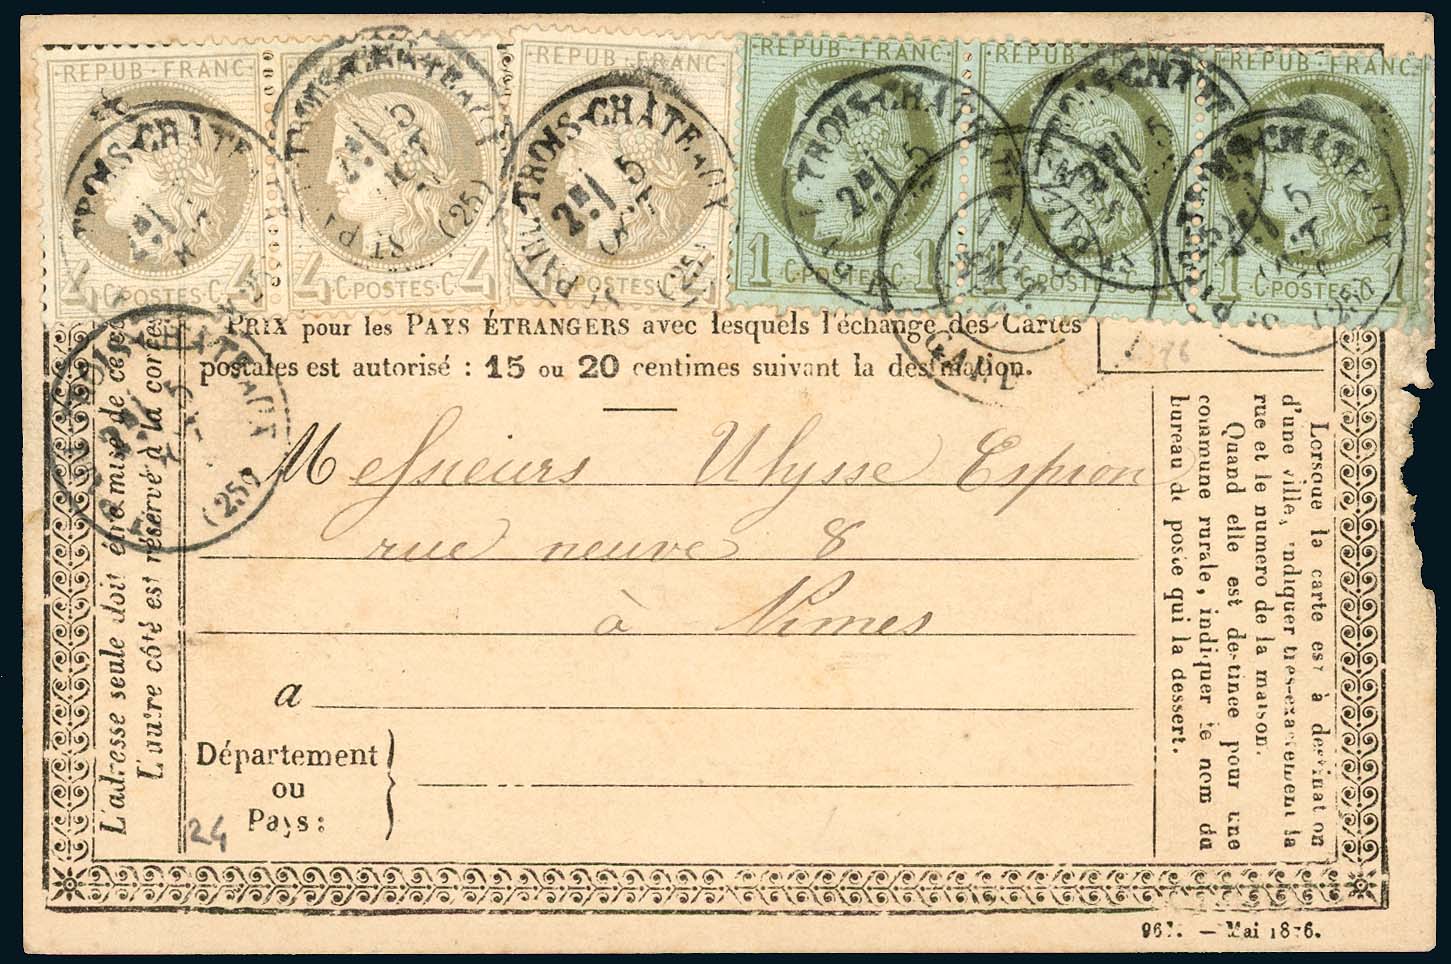 REPUB·FRANC·
4 C·POSTES·C 4
REPUB·FRANC
4 C·POSTES·C 4
REPUB·FRANC
POSTES·C
REPUB·FRANC
1 C·POSTES·C 1
REPUB·FRANC
1
REPUB·FRANC·
1 C·POSTES·C 1
TROIS-CHÂTE
ST PAUL-TROIS-CHATEAUX
2E/
5
OCT
(25)
(25)
TROIS-CHATE
2E/
5
GARE
PRIX pour les PAYS ÉTRANGERS avec lesquels l'échange des Cartes
postales est autorisé : 15 ou 20 centimes suivant la destination.
TROIS-CHATEAUX
2E/
5
(25)
Messieurs Ulysse Espion
rue neuve 8
à Nimes
a
Département
ou
Pays :
24
L'adresse seule doit être mise de ce côté
L'autre côté est réservé à la corres
Lorsque la carte est à destination
d'une ville, indiquer très-exactement la
rue et le numero de la maison.
Quand elle est destinee pour une
commune rurale, indiquer le nom du
bureau de poste qui la dessert.
967. — Mai 1876.